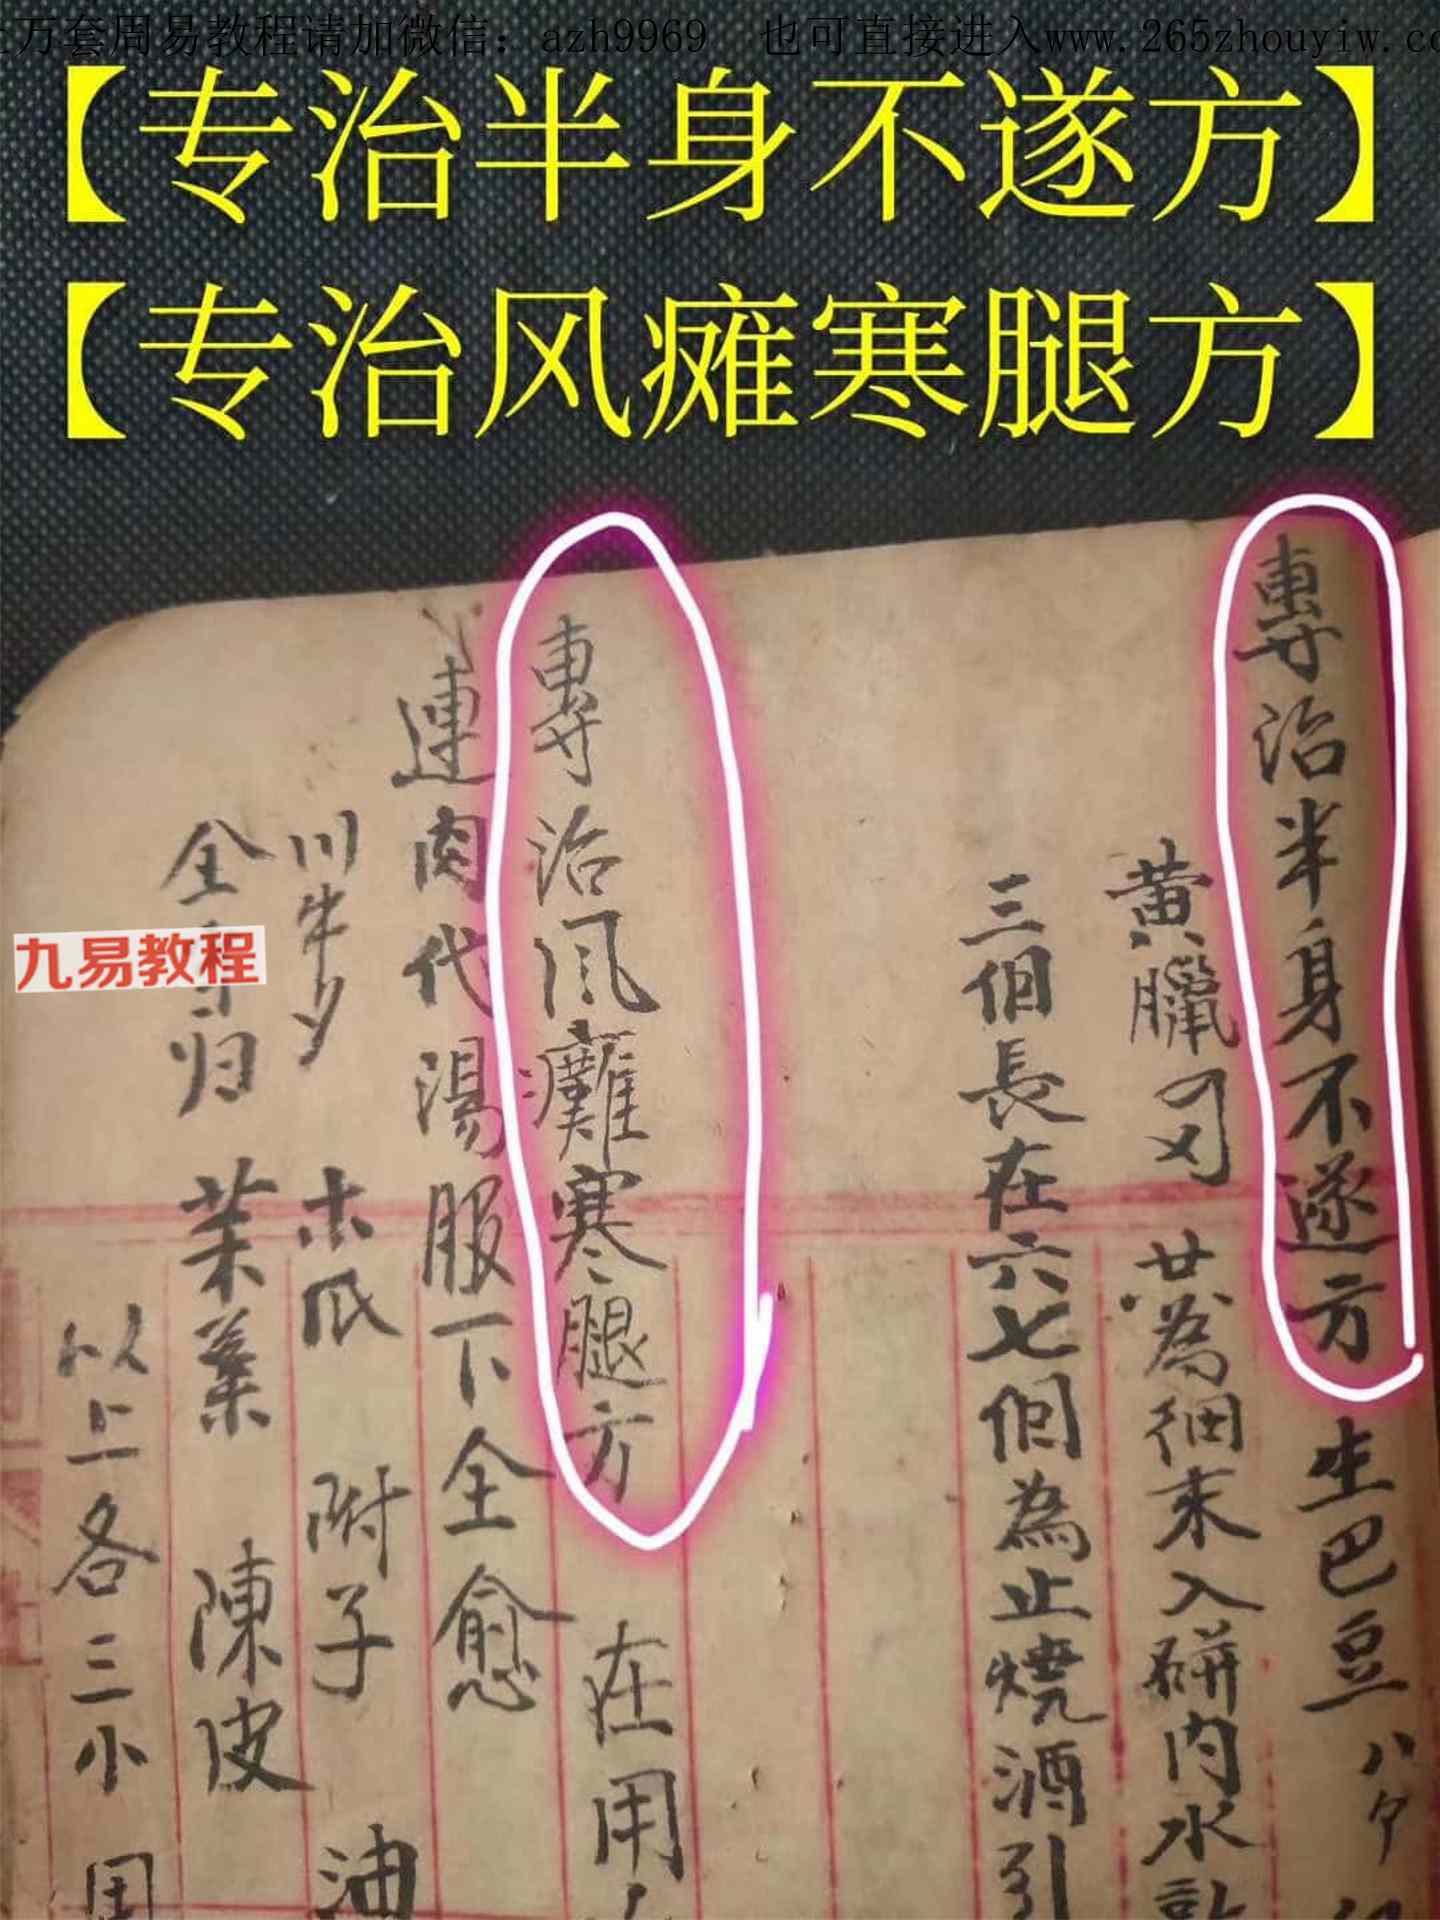 万套周易教程请加微信：azh9969 也可直接进入www.265zhouyiw.co
【专治半身不遂方】
【专治风瘫寒腿方】
專治半身不遂方 生巴豆
黄臘 廿為細末入硑内水
三個長在六七個為止燒酒引
專治风癱寒腿方 在用
連肉代湯服下全愈
川牛夕 木瓜 附子 油
全 归 茉葉 陳皮
以上各三小
九易教程